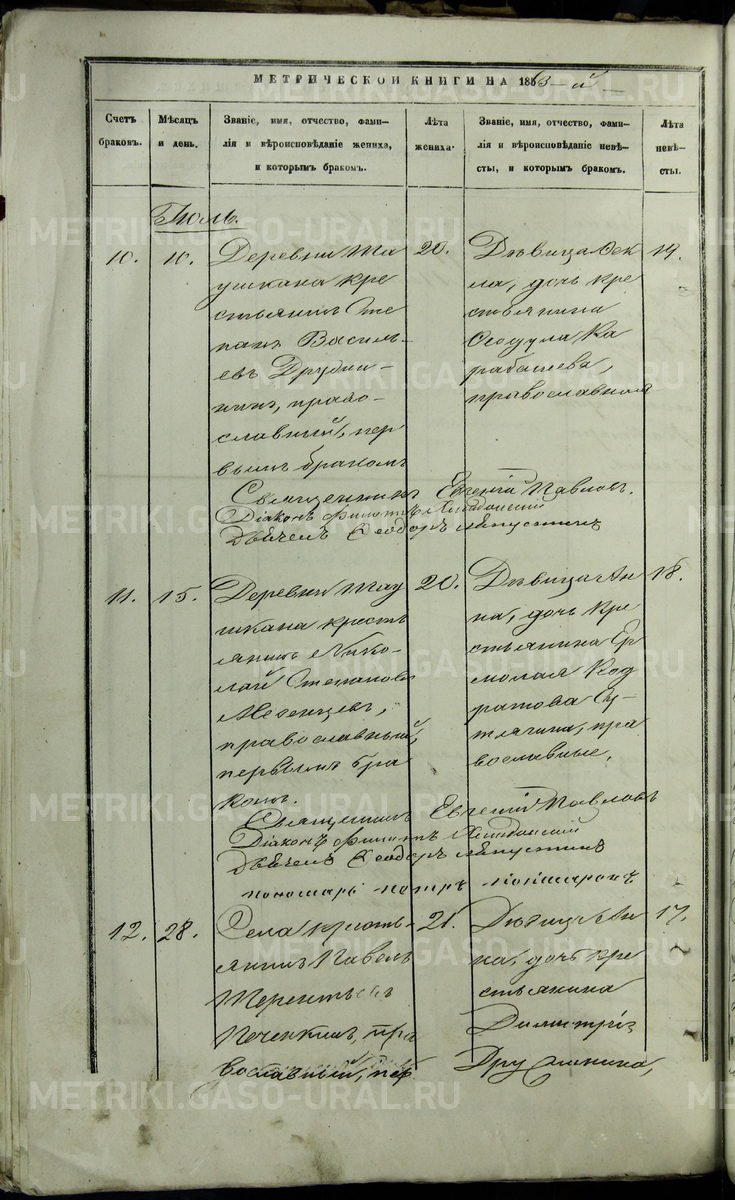 МЕТРИЧЕСКОЙ КНИГИ НА 1863-й
Счетъ браковъ.
Мѣсяцъ и день.
Званіе, имя, отчество, фами-
лія и вѣроисповѣданіе жениха,
и которымъ бракомъ.
Лѣта жениха.
Званіе, имя, отчество, фами-
лія и вѣроисповѣданіе невѣ-
сты, и которымъ бракомъ.
Лѣта невѣ-
сты.
Іюль.
10. 10.
Деревни Та
ушкана кре
стьянинъ Сте
панъ Василь-
евъ Дружи-
нинъ, право-
славный, пер
вымъ бракомъ
20.
Дѣвица Ѳек
ла, дочь кре
стьянина
Ѳеодула Ка
рабаева,
православная
19.
Священникъ Евгеній Павловъ.
Діаконъ Филиппъ
Дьячекъ Ѳеодоръ
11. 15.
Деревни Тау
шкана кресть
янинъ Нико-
лай Степановъ
Мезенцевъ,
православный,
первымъ бра
комъ.
20.
Дѣвица Ан
на, дочь кре
стьянина Ер
молая Код
ратова Су-
тягина, пра
вославные,
18.
Священникъ Евгеній Павловъ
Діаконъ Филиппъ
Дьячекъ Ѳеодоръ
пономарь Петръ
12. 28.
Села кресть-
янинъ Павелъ
Терентьевъ
Печенкинъ, пра
вославный, пер
21.
Дѣвица Ан
на, дочь кре
стьянина
Димитрія
Дружинина,
17.
METRIKI.GASO-URAL.RU